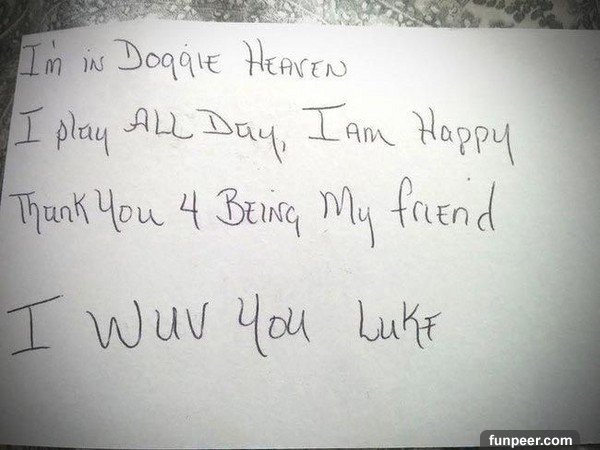 I'm in Doggie Heaven
I play All Day, I am Happy
Thank You 4 Being My friend
I wuv you Luke
funpeer.com